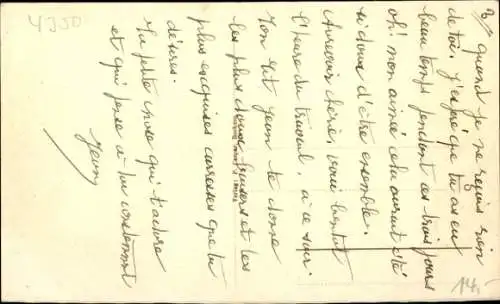 quand je ne reçois rien
de toi. J'espère que tu as eu
beau temps pendant ces trois jours
oh! mon aimée cela aurait été
si doux d'être ensemble.
Aurevoir chérie, voici bientôt
l'heure du travail, à ce soir.
Ton Jean te donne
les plus doux baisers et les
plus exquises caresses que tu
désires.
Ta petite chose qui t'adore
et qui pense à toi constamment
Jeany
4350
14,-